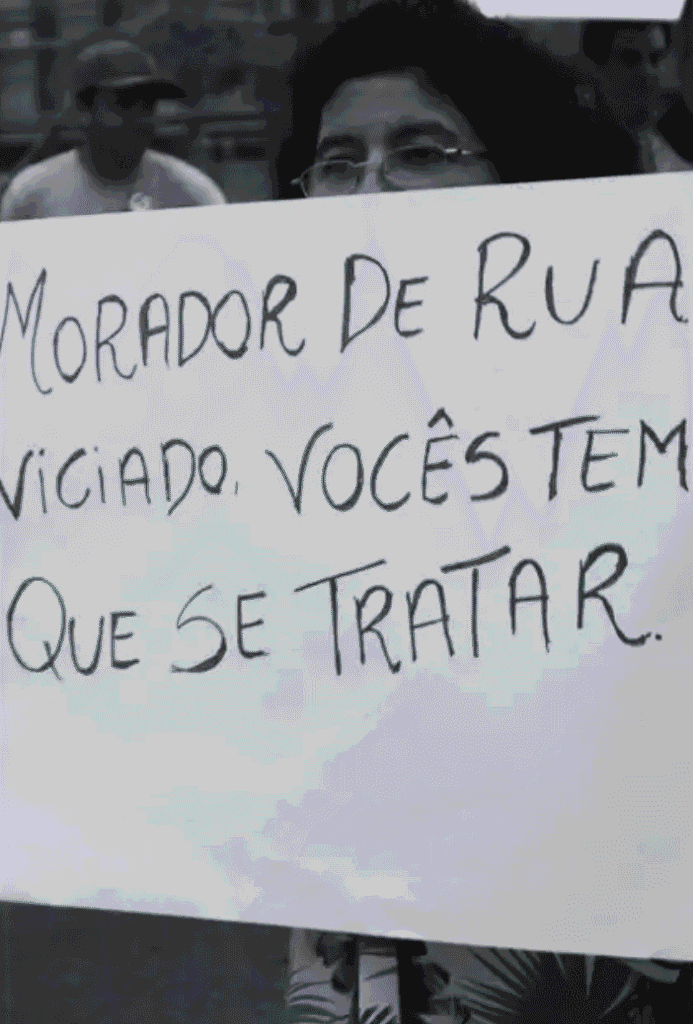 MORADOR DE RUA
VICIADO, VOCÊS TEM
QUE SE TRATAR.